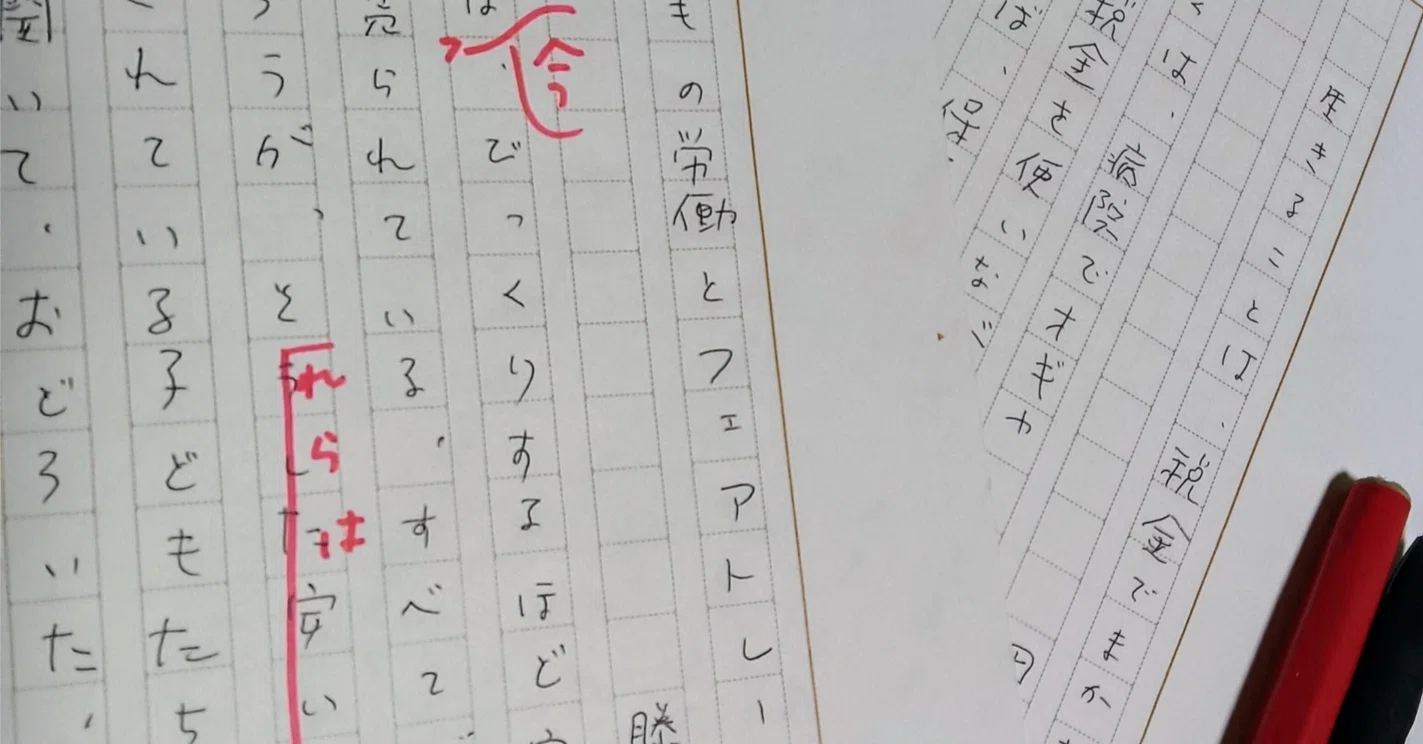 生きることは、税金でまか
くは、病院でオギャ
税金を使いな
ば、保
もの労働とフェアトレー
藤
は、びっくりするほど
売られている。すべて
うが、それらは安い
れている子どもたち
いて、おどろいた。